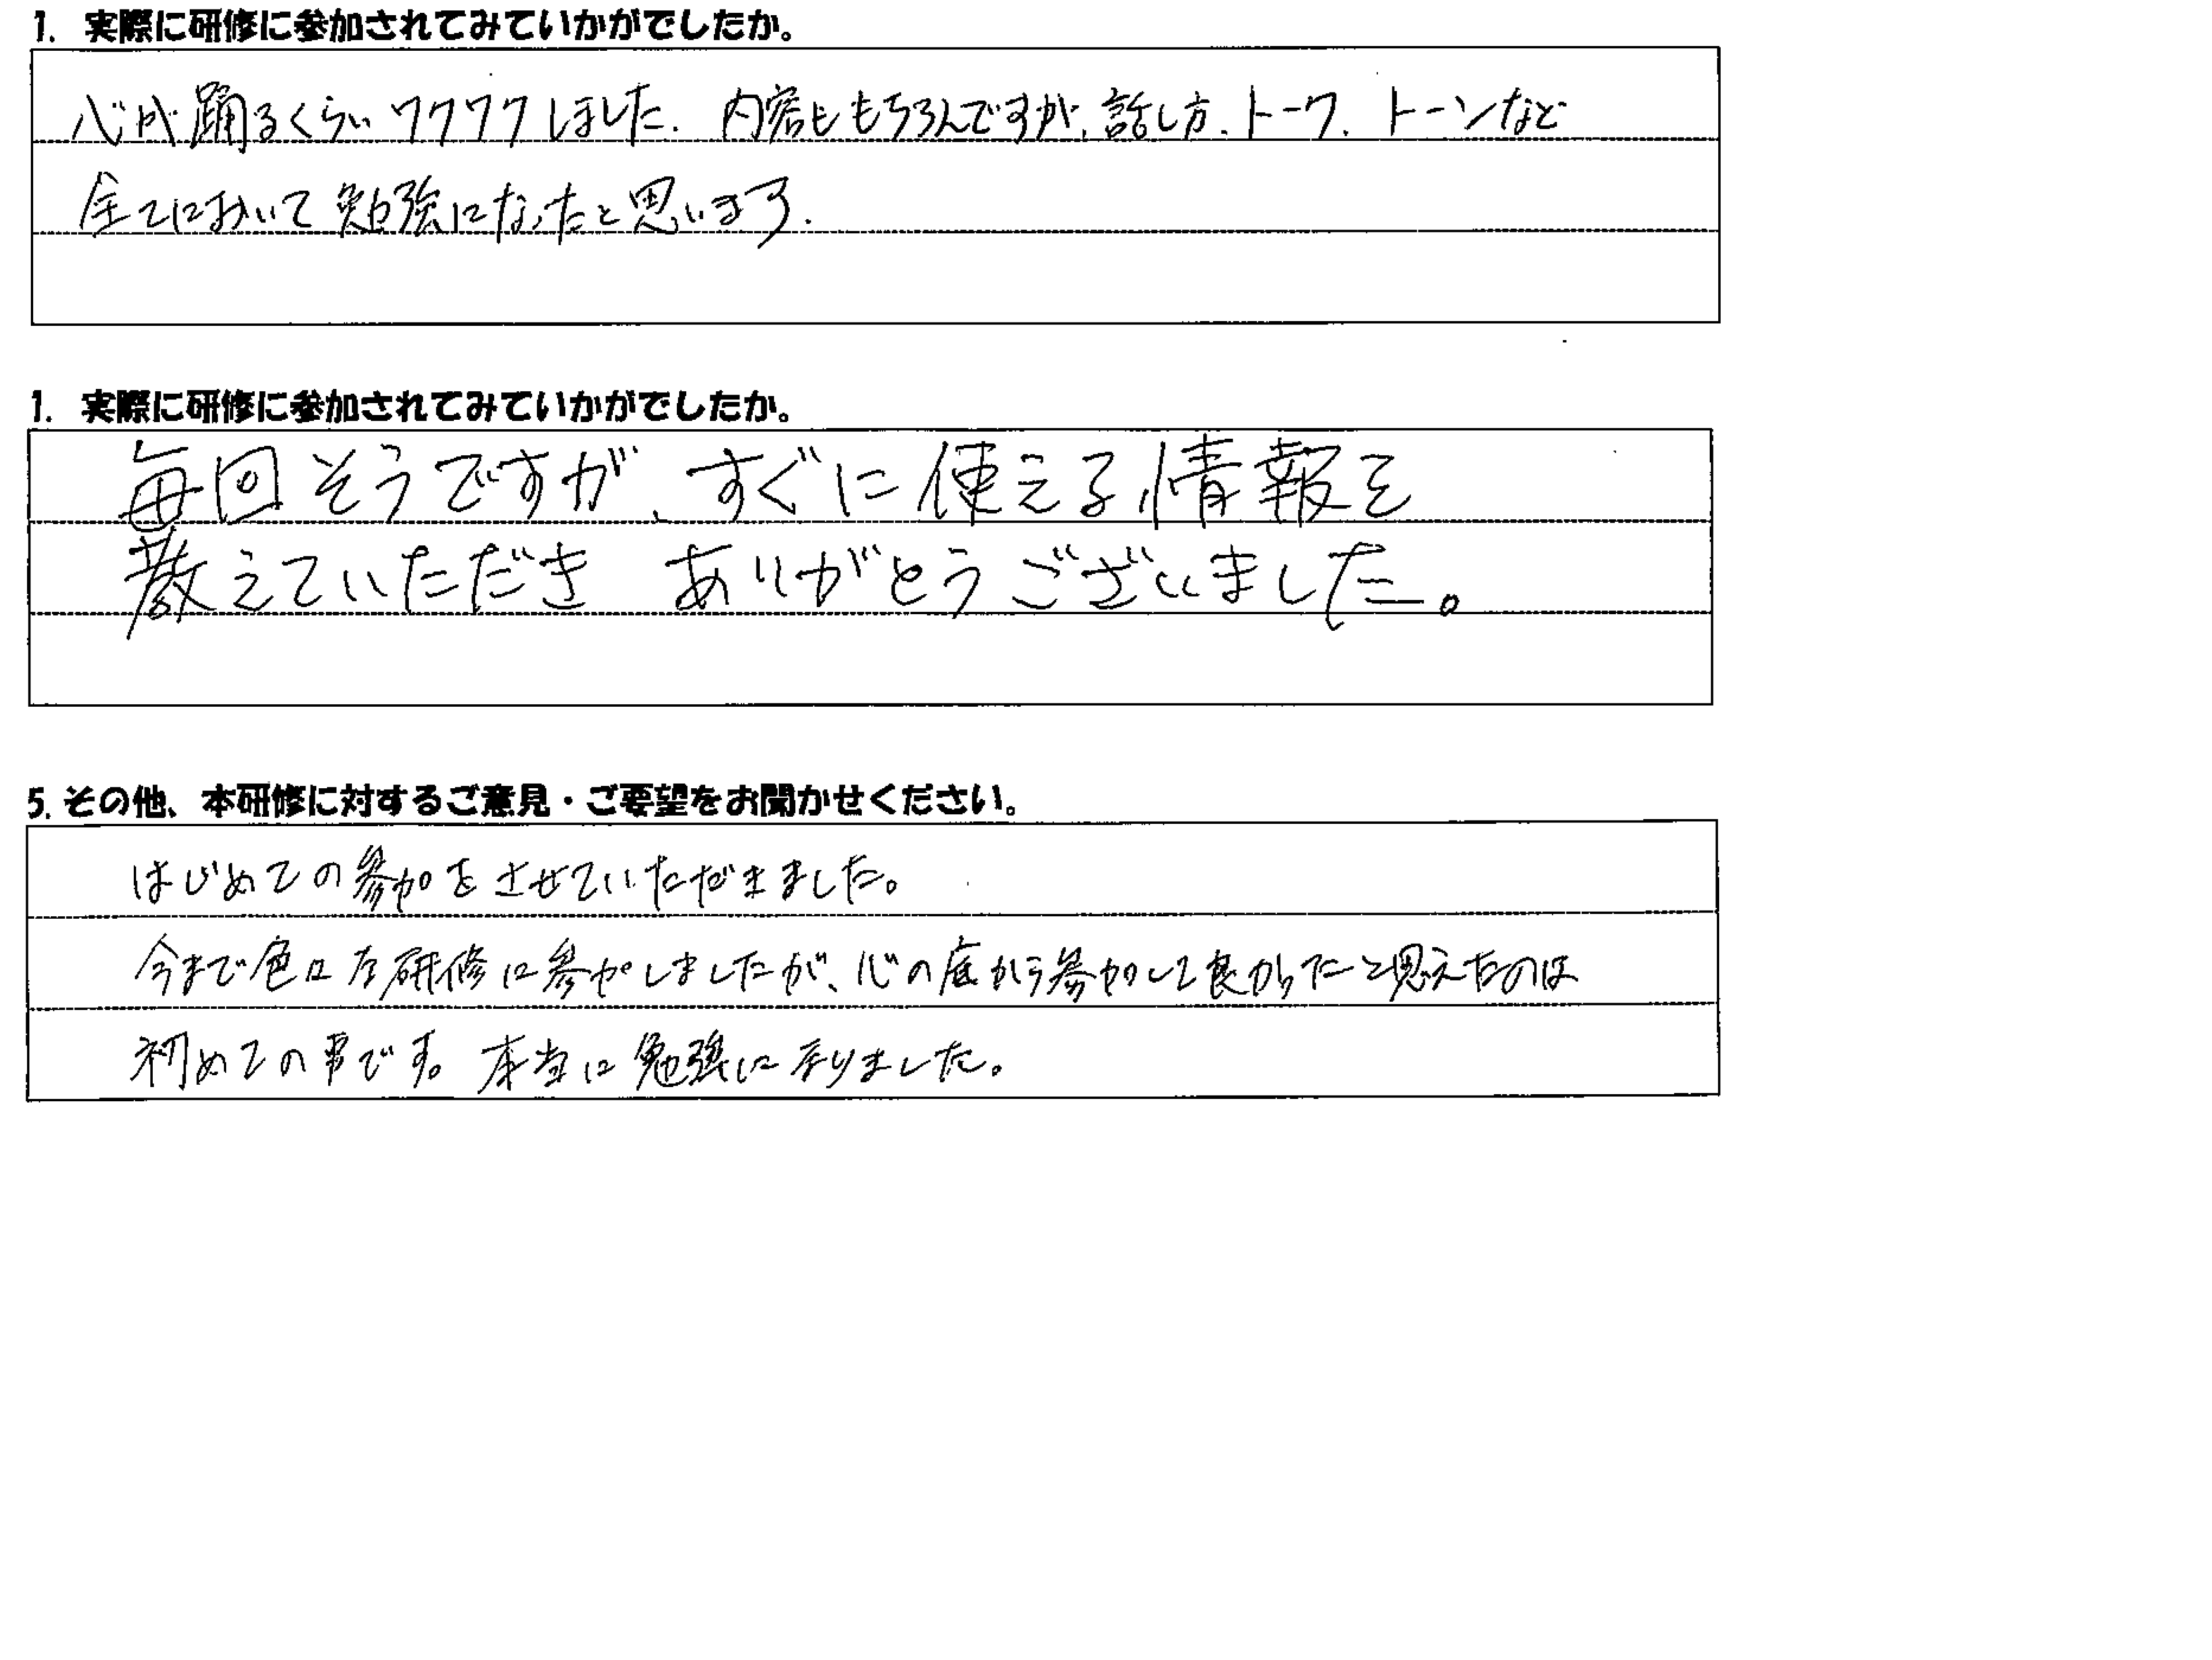 1. 実際に研修に参加されてみていかがでしたか。
心が踊るくらいワクワクしました. 内容ももちろんですが、話し方、トーク、トーンなど
全てにおいて勉強になったと思います.
1. 実際に研修に参加されてみていかがでしたか。
毎回そうですが、すぐに使える情報を
教えていただき ありがとうございました。
5. その他、本研修に対するご意見・ご要望をお聞かせください。
はじめての参加をさせていただきました。
今まで色々な研修に参加しましたが、心の底から参加して良かったと思えたのは
初めての事です。本当に勉強になりました。